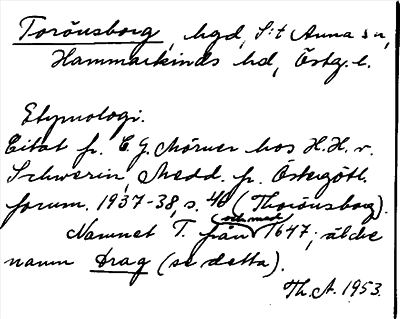 Torönsborg, hgd, S:t Anna sn,
Hammarkinds hd, Östg. l.
Etymologi.
Citat fr. C. G. Mörner hos H. H. v.
Schwerin, Medd. fr. Östergötl.
fornm. 1937-38, s. 46 (Thorönsborg).
Namnet T. från och med 1647; äldre
namn Drag (se detta).
Th. A. 1953.